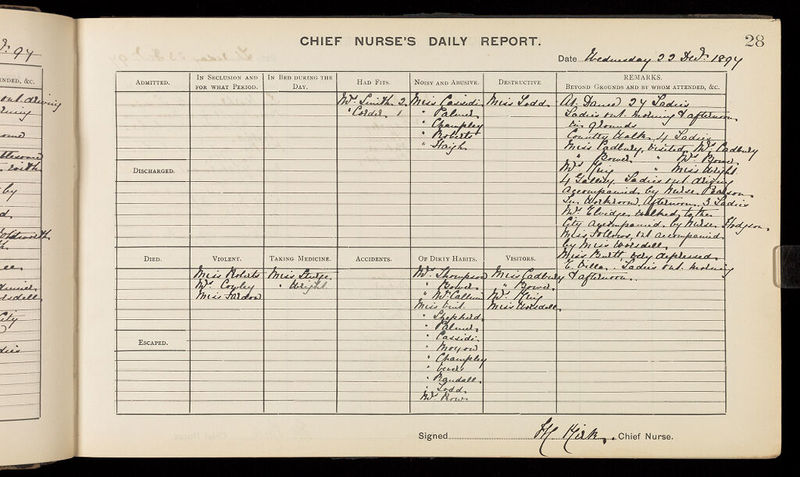 : 97
CHIEF NURSE'S DAILY REPORT.
28
Date Wednesday 22 Decr 1897
NDED, &C.
ADMITTED.
IN SECLUSION AND FOR WHAT PERIOD.
IN BED DURING THE DAY.
HAD FITS.
NOISY AND ABUSIVE.
DESTRUCTIVE.
REMARKS.
BEYOND GROUNDS AND BY WHOM ATTENDED, &C.
Mrs Smith. 2.
" 1
Miss Cassidi
" Palmer
" Champley
" Roberts
" Haigh
Miss Todd
At Dance 24 Ladies
Ladies out morning & afternoon
in grounds
Country Walk. 4 Ladies
Miss Cadbury, Visited Mrs Cadbury
" Bower " Mrs Bower
Mrs King " Miss Wright
4 Gallery Ladies out driving
accompanied by Nurse Pearson
In Workroom afternoon. 3 Ladies
Mrs Elvidge, walked to the
City accompanied by Nurse Hodgson.
Miss Follows, out accompanied
by Miss Worsdell
Miss Burtt, very depressed
E. Villa. Ladies out morning
& afternoon.
DISCHARGED.
DIED.
VIOLENT.
TAKING MEDICINE.
ACCIDENTS.
OF DIRTY HABITS.
VISITORS.
Miss Roberts
Mrs Copley
Miss Jardon
Miss Sturge
" Wright
Mrs Thompson
" Bower
" McCallum
Miss
" Shepherd
" Palmer
" Cassidi
"
" Champley
"
" Randall
" Todd
Mrs Row
Miss Cadbury
" Bower
Mrs King
Miss Worsdell
ESCAPED.
Signed H Kirk. Chief Nurse.